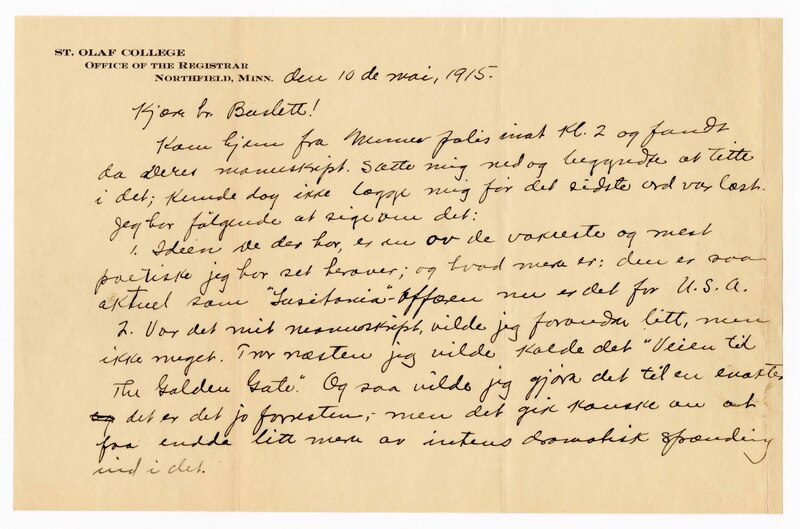 ST. OLAF COLLEGE
OFFICE OF THE REGISTRAR
NORTHFIELD, MINN. den 10 de mai, 1915.
Kjære hr. Buslett!
Kom hjem fra Minneapolis inat Kl. 2 og fandt
da Deres manuskript. Satte mig ned og begyndte at titte
i det; kunde dog ikke lægge mig før det sidste ord var læst.
Jeg har følgende at sige om det:
1. Ideen De der har, er en av de vakreste og mest
poetiske jeg har set herover; og hvad mere er: den er saa
aktuel som "Lusitania"-affæren nu er det for U.S.A.
2. Var det mit manuskript, vilde jeg forandre litt, men
ikke meget. Tror næsten jeg vilde kalde det "Veien til
The Golden Gate". Og saa vilde jeg gjøre det til en enakter
det er det jo forresten,- men det gik kanske an at
faa endda litt mere av intens dramatisk spænding
ind i det.